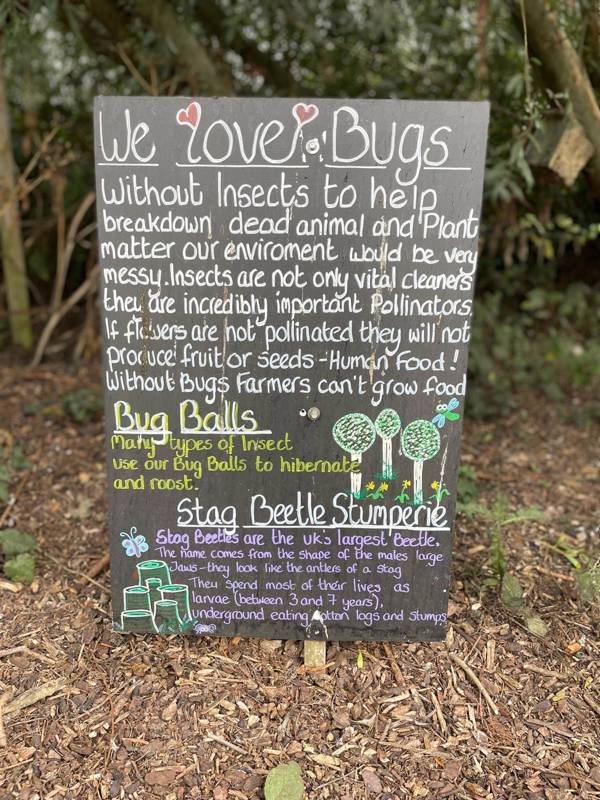 We love Bugs
Without Insects to help
breakdown dead animal and Plant
matter our enviroment would be very
messy. Insects are not only vital cleaners
they are incredibly important Pollinators.
If flowers are not pollinated they will not
produce fruit or seeds - Human Food!
Without Bugs Farmers can't grow food
Bug Balls
Many types of Insect
use our Bug Balls to hibernate
and roost.
Stag Beetle Stumperie
Stag Beetles are the uk's largest Beetle.
The name comes from the shape of the males large
Jaws - they look like the antlers of a stag
They spend most of their lives as
larvae (between 3 and 7 years),
underground eating rotton logs and stumps